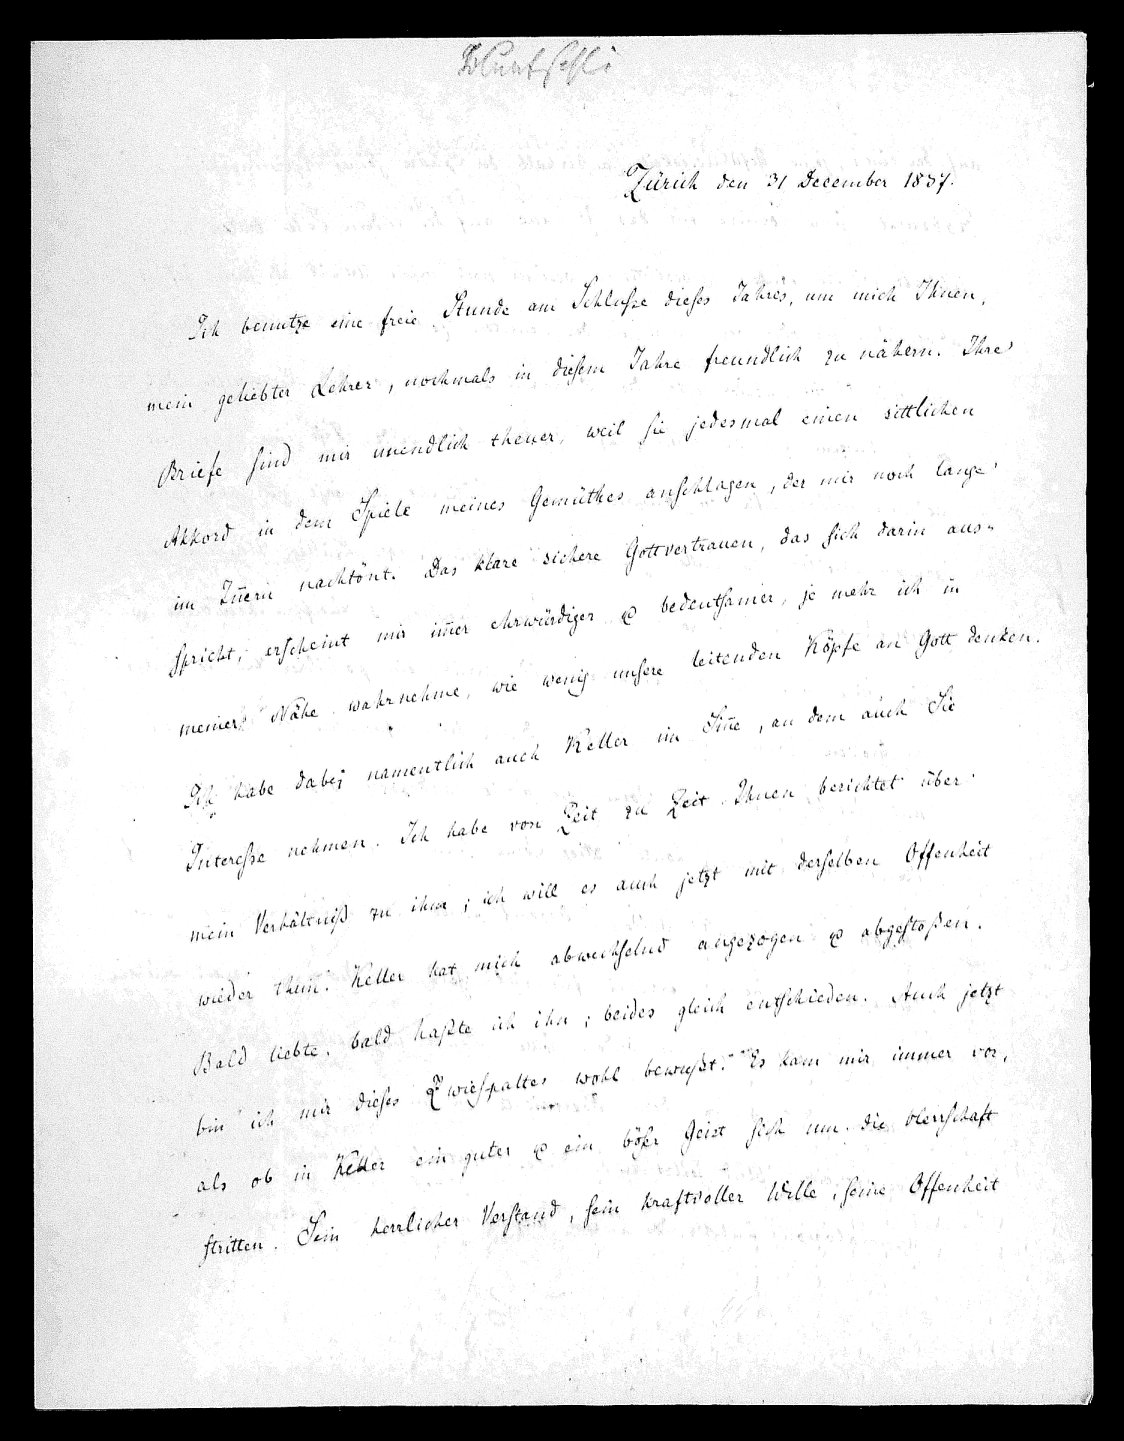 Bluntschli
Zürich den 31 December 1837.
Ich benutze eine freie Stunde am Schluße dieses Jahres, um mich Ihnen,
mein geliebter Lehrer, nochmals in diesem Jahre freundlich zu nähern. Ihre
Briefe sind mir unendlich theuer, weil sie jedesmal einen sittlichen
Akkord in dem Spiele meines Gemüthes anschlagen, der mir noch lange
im Iñern nachtönt. Das klare sichere Gottvertrauen, das sich darin aus-
spricht, erscheint mir im̃er ehrwürdiger & bedeutsamer, je mehr ich in
meiner Nähe wahrnehme, wie wenig unsere leitenden Köpfe an Gott denken.
Ich habe dabei namentlich auch Keller im Siñe, an dem auch Sie
Intereße nehmen. Ich habe von Zeit zu Zeit Ihnen berichtet über
mein Verhältniß zu ihm; ich will es auch jetzt mit derselben Offenheit
wieder thun. Keller hat mich abwechselnd angezogen & abgestoßen.
Bald liebte, bald haßte ich ihn; beides gleich entschieden. Auch jetzt
bin ich mir dieses Zwiespaltes wohl bewußt. Es kam mir immer vor,
als ob in Keller ein guter & ein böser Geist sich um die Herrschaft
stritten. Sein herrlicher Verstand, sein kraftvoller Wille, seine Offenheit